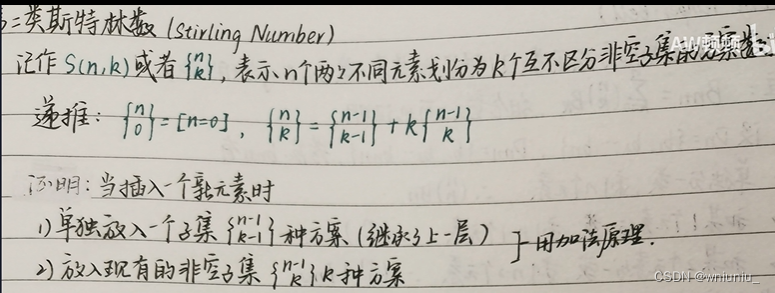 第二类斯特林数 (Stirling Number)
记作 S(n,k) 或者 {n k}, 表示 n个两两不同元素划分为 k个互不区分非空子集的方案数
递推: {n 0} = [n=0], {n k} = {n-1 k-1} + k{n-1 k}
证明: 当插入一个新元素时
1) 单独放入一个子集 {n-1 k-1} 种方案 (继承了上一层)
} 用加法原理.
2) 放入现有的非空子集 {n-1 k} k 种方案
CSDN @wniuniu_